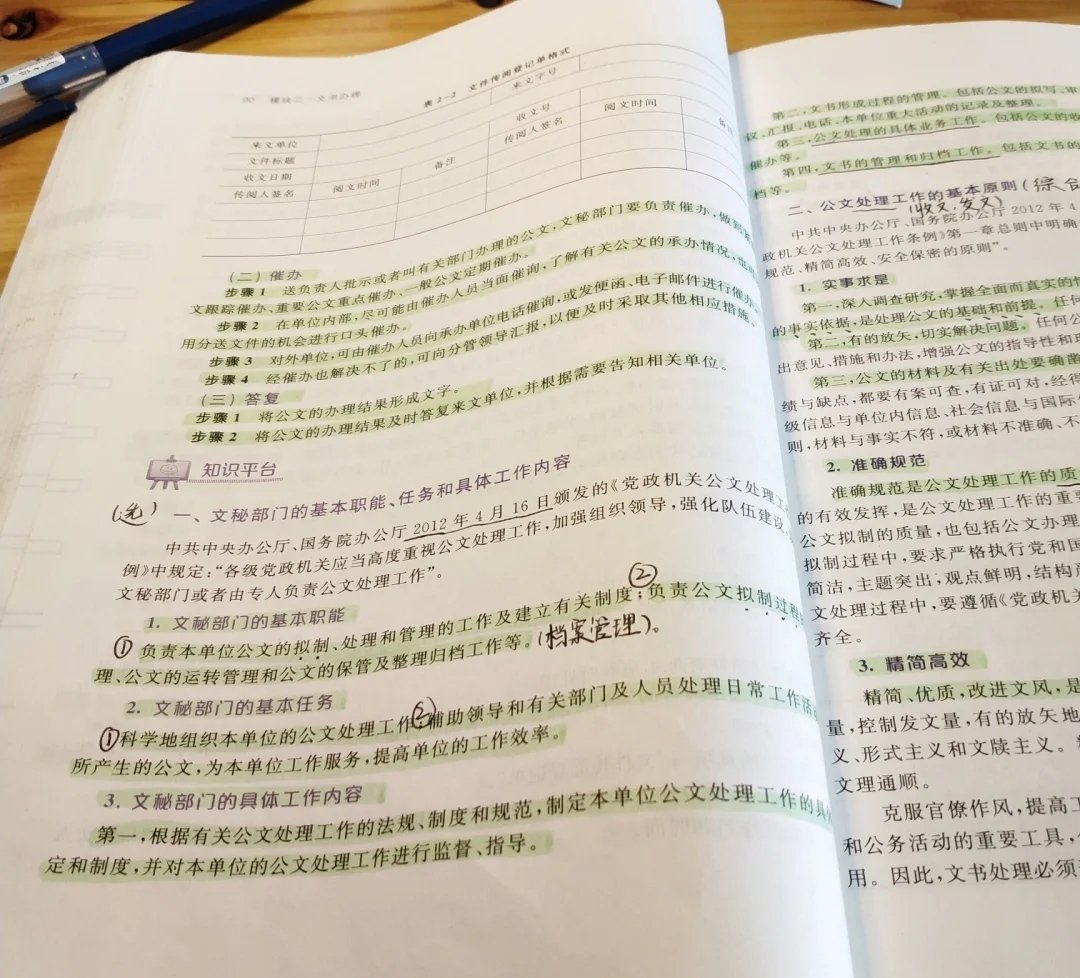 90 模块二 文书办理
表2-2 文件传阅登记单格式
来文单位
来文字号
文件标题
收文日期
备注
收文号
传阅人签名
阅文时间
传阅人签名
阅文时间
备注
(二)催办
步骤1 送负责人批示或者叫有关部门办理的公文,文秘部门要负责催办,做到
文跟踪催办、重要公文重点催办、一般公文定期催办。
步骤2 在单位内部,尽可能由催办人员当面催询,了解有关公文的承办情况,
用分送文件的机会进行口头催办。
步骤3 对外单位,可由催办人员向承办单位电话催询,或发便函、电子邮件进行催办
步骤4 经催办也解决不了的,可向分管领导汇报,以便及时采取其他相应措施。
(三)答复
步骤1 将公文的办理结果形成文字。
步骤2 将公文的办理结果及时答复来文单位,并根据需要告知相关单位。
知识平台
(选) 一、文秘部门的基本职能、任务和具体工作内容
中共中央办公厅、国务院办公厅2012年4月16日颁发的《党政机关公文处理工
例》中规定:“各级党政机关应当高度重视公文处理工作,加强组织领导,强化队伍建设,
文秘部门或者由专人负责公文处理工作”。
1. 文秘部门的基本职能
① 负责本单位公文的拟制、处理和管理的工作及建立有关制度;②负责公文拟制过程
理、公文的运转管理和公文的保管及整理归档工作等。(档案管理)。
2. 文秘部门的基本任务
①科学地组织本单位的公文处理工作;辅助领导和有关部门及人员处理日常工作活
所产生的公文,为本单位工作服务,提高单位的工作效率。
3. 文秘部门的具体工作内容
第一,根据有关公文处理工作的法规、制度和规范,制定本单位公文处理工作的具
定和制度,并对本单位的公文处理工作进行监督、指导。
第二,文书形成过程的管理。包括公文的拟写、审
议、汇报、电话、本单位重大活动的记录及整理。
第三,公文处理的具体业务工作。包括公文的收
催办等。
第四,文书的管理和归档工作。包括文书的
档等。
二、公文处理工作的基本原则(综合
(收文、发文)
中共中央办公厅、国务院办公厅2012年4
政机关公文处理工作条例》第一章总则中明确
规范、精简高效、安全保密的原则”。
1. 实事求是
第一,深入调查研究,掌握全面而真实的情
的事实依据,是处理公文的基础和前提。任何
第二,有的放矢,切实解决问题。任何公
出意见、措施和办法,增强公文的指导性和
第三,公文的材料及有关出处要确凿
绩与缺点,都要有案可查,有证可对,经得
级信息与单位内信息、社会信息与国际
则,材料与事实不符,或材料不准确、不
2. 准确规范
准确规范是公文处理工作的质
的有效发挥,是公文处理工作的重要
公文拟制的质量,也包括公文办理
拟制过程中,要求严格执行党和国
简洁,主题突出,观点鲜明,结构
文处理过程中,要遵循《党政机关
齐全。
3. 精简高效
精简、优质,改进文风,是
量,控制发文量,有的放矢地
义、形式主义和文牍主义。
文理通顺。
克服官僚作风,提高工
和公务活动的重要工具,
用。因此,文书处理必须